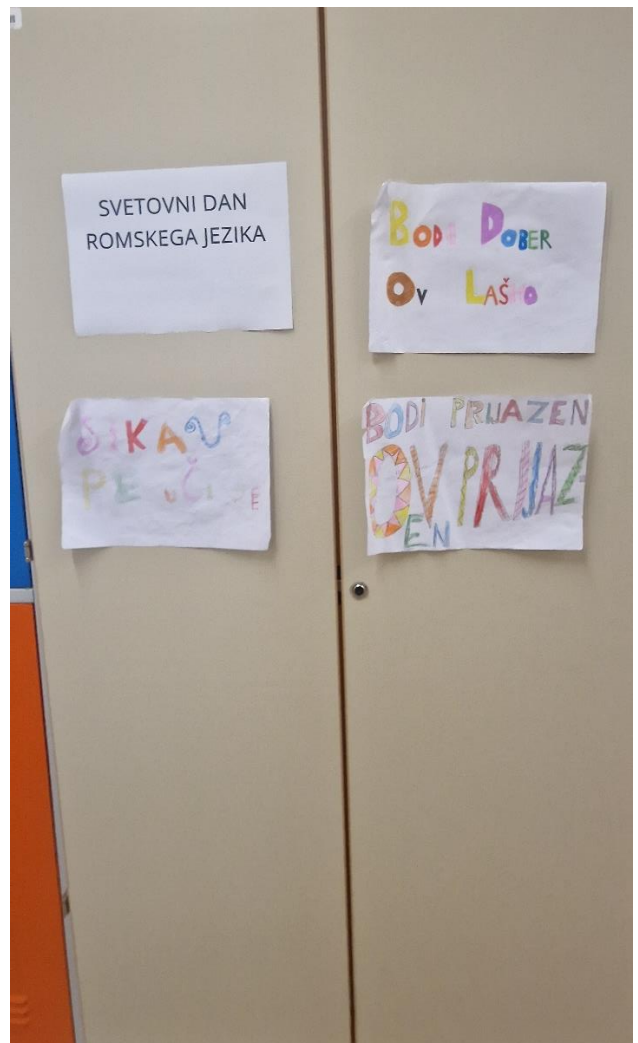 SVETOVNI DAN
ROMSKEGA JEZIKA
BODI DOBER
OV LAŠHO
SIKAV
PE UČI SE
BODI PRIJAZEN
OV PRIJAZ-
EN